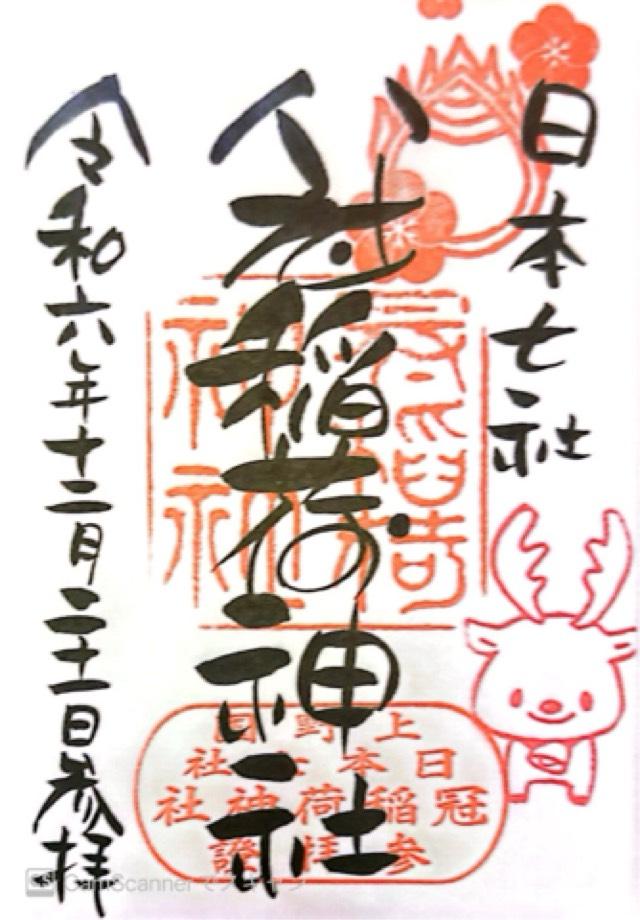 日本七社
八社稲荷神社
令和六年十二月二十一日参拝
上野国
日本七社
冠稲荷神社
参拝證
CS CamScanner でスキャン